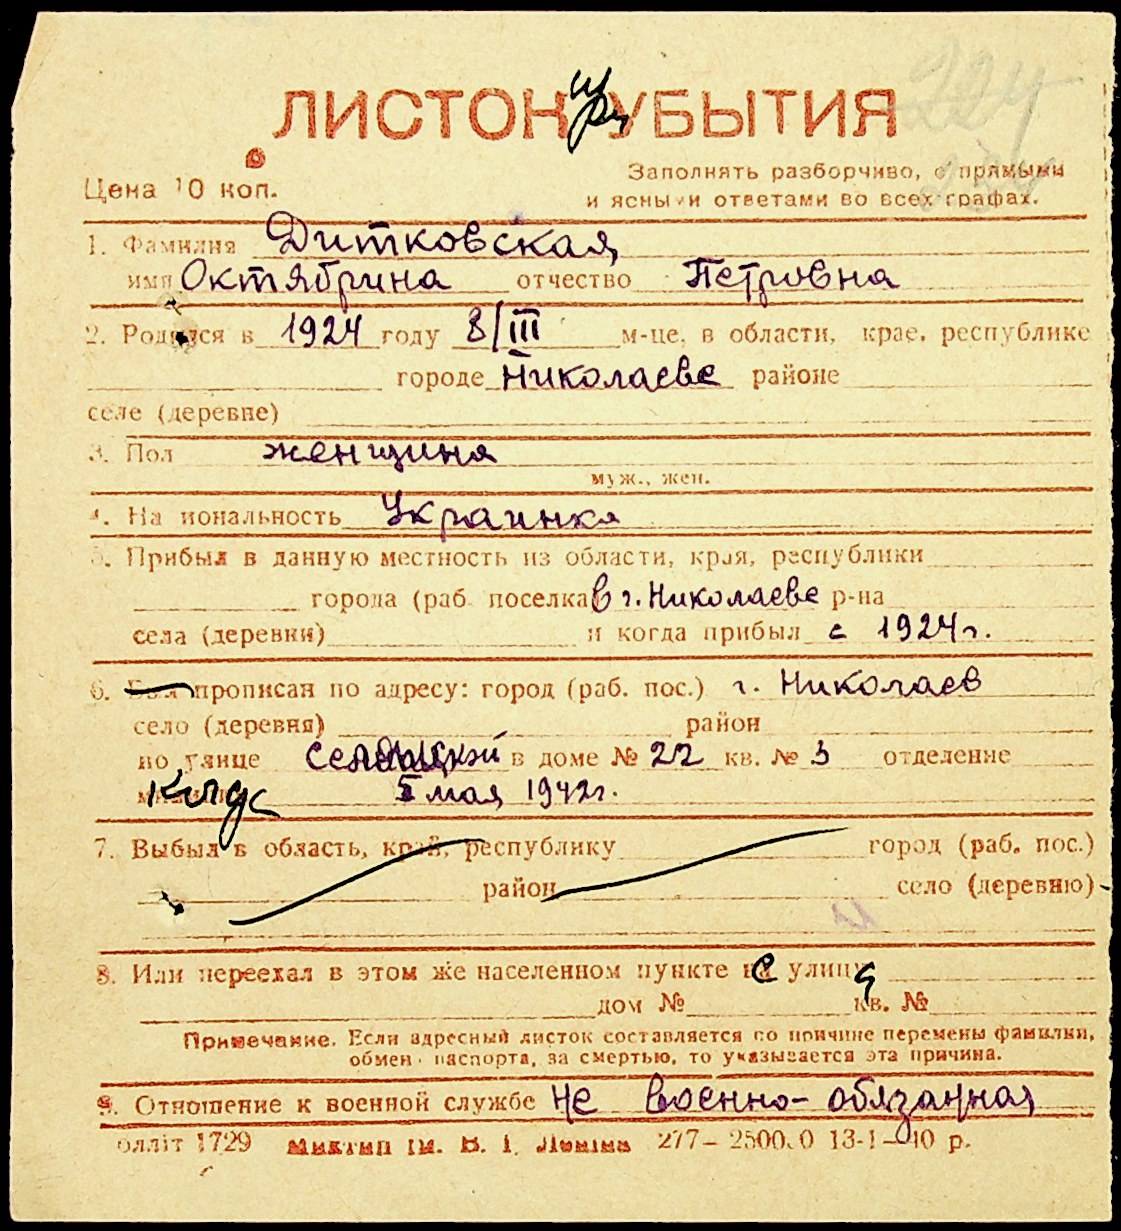 ЛИСТОК при УБЫТИЯ
204
204
Цена 10 коп.
Заполнять разборчиво, с прямыми
и ясными ответами во всех графах.
1. Фамилия Дитковская
имя Октябрина отчество Петровна
2. Родился в 1924 году 8/III м-це, в области, крае, республике
городе Николаеве районе
селе (деревне)
3. Пол женщина
муж., жен.
4. Национальность Украинка
5. Прибыл в данную местность из области, края, республики
города (раб. поселка) в г. Николаеве р-на
села (деревни) и когда прибыл с 1924 г.
6. Был прописан по адресу: город (раб. пос.) г. Николаев
село (деревня) район
по улице в доме № 22 кв. № 3 отделение
5 мая 1942 г.
7. Выбыл в область, край, республику город (раб. пос.)
район село (деревню)
8. Или переехал в этом же населенном пункте с улицы
дом № кв. №
Примечание. Если адресный листок составляется по причине перемены фамилии,
обмен паспорта, за смертью, то указывается эта причина.
9. Отношение к военной службе не военно-обязанная
олліт 1729 Миктип ім. В. І. Леніна 277–25000 13-1-40 р.